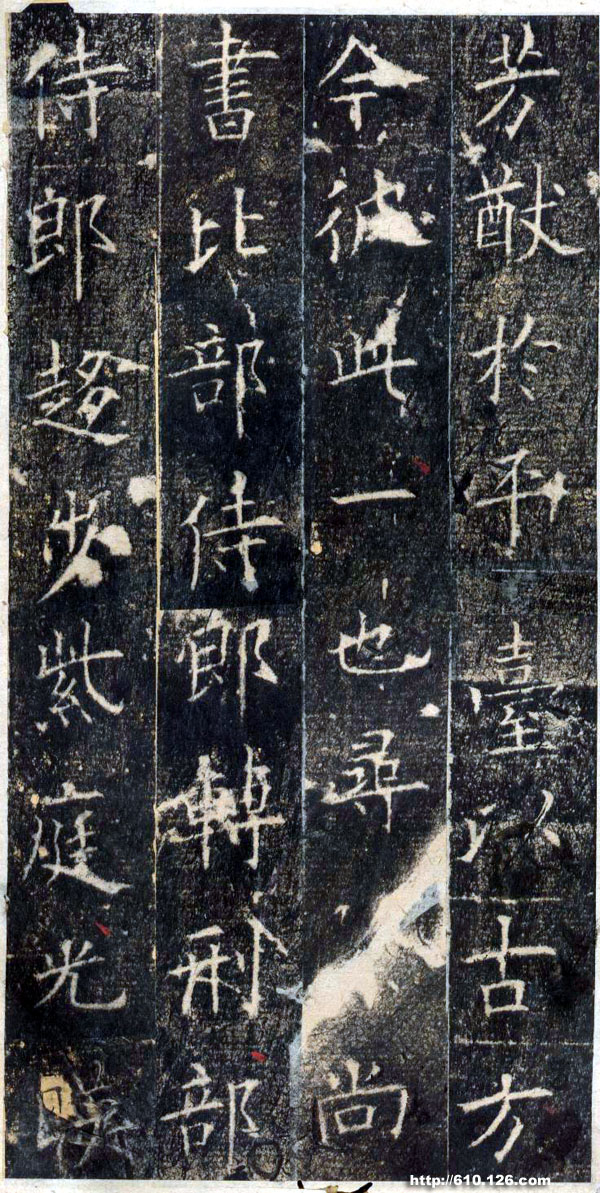 芳猷於平臺以古方
今彼此一也尋尚
書比部侍郎轉刑部
侍郎趨步紫庭光映
http://610.126.com